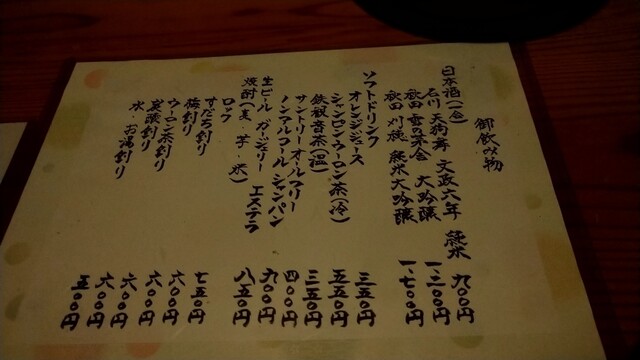 御飲み物
日本酒(一合)
石川 天狗舞 文政六年 純米 九〇〇円
秋田 雪の茅舎 大吟醸 一、三〇〇円
秋田 刈穂 純米大吟醸 一、七〇〇円
ソフトドリンク
オレンジジュース 三五〇円
シャンロン・ウーロン茶(冷) 五五〇円
鉄観音茶(温) 三五〇円
サントリーオールフリー 四〇〇円
ノンアルコールシャンパン 九〇〇円
生ビール ガージェリー エステラ 八五〇円
焼酎(麦・芋・米)
ロック 七五〇円
すだち割り 六〇〇円
梅割り 六〇〇円
ウーロン茶割り 六〇〇円
炭酸割り 六〇〇円
水・お湯割り 五〇〇円